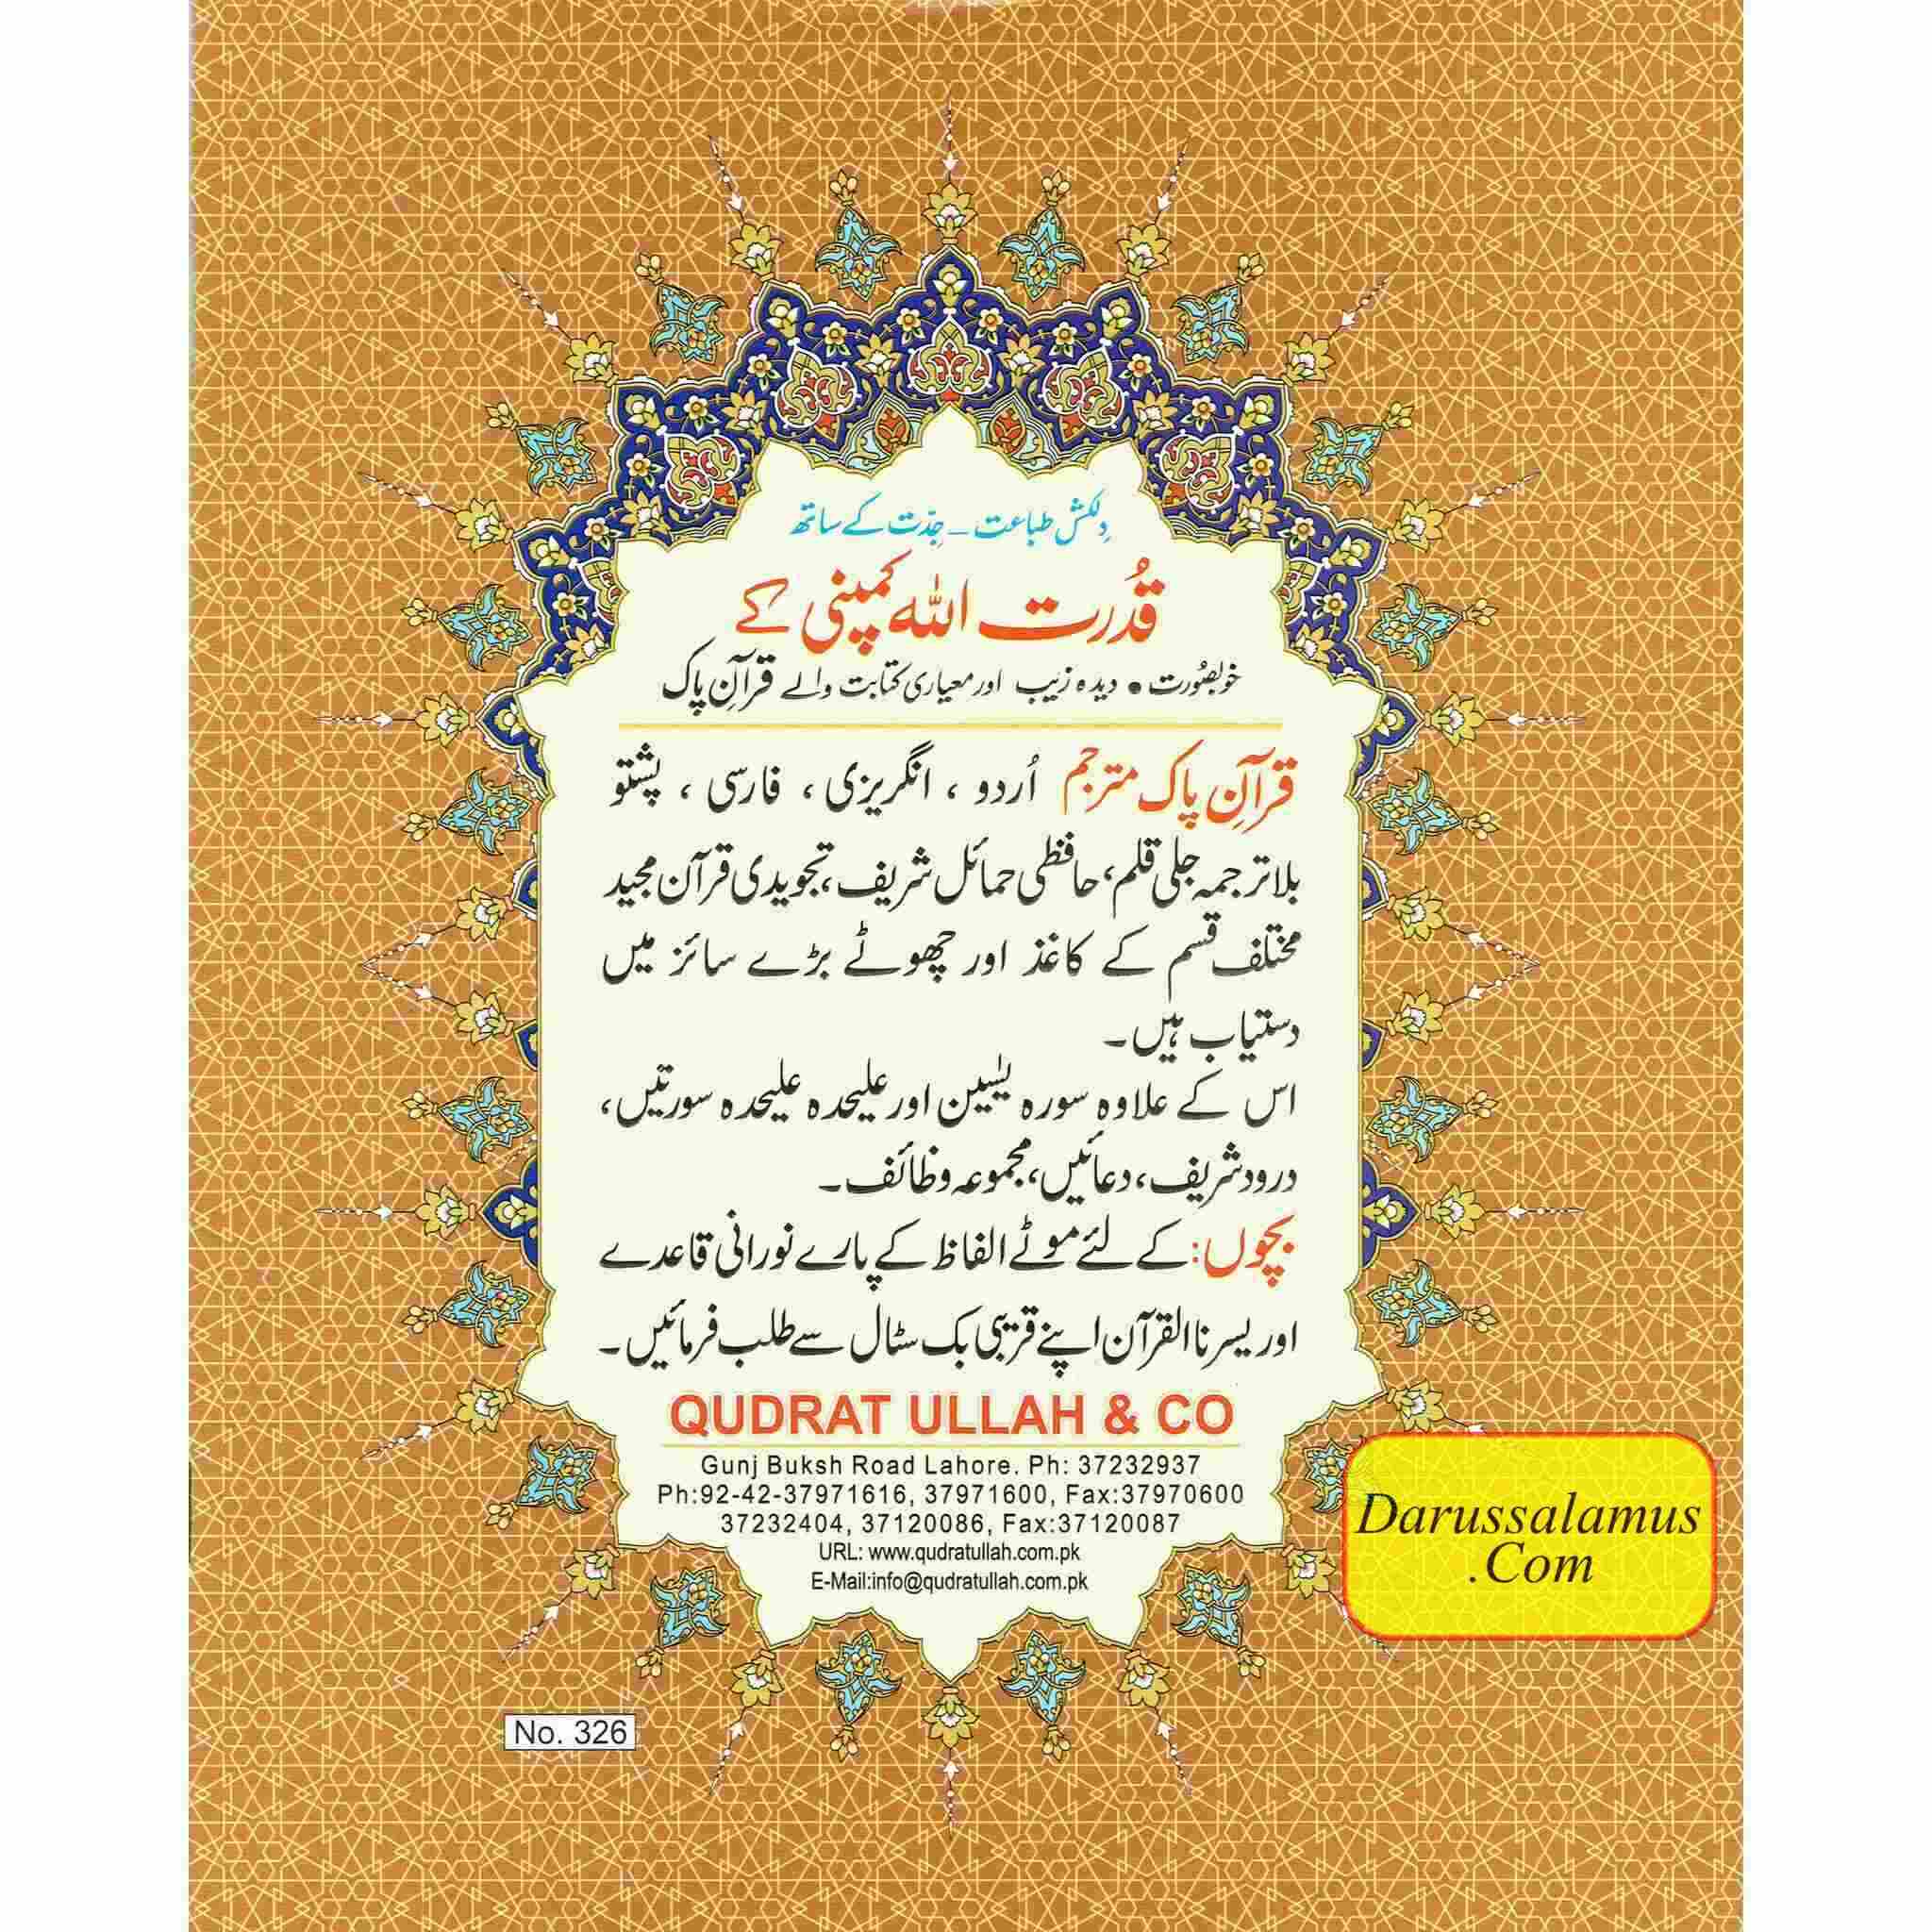 دِلکش طباعت ـ جِدّت کے ساتھ
قُدرت اللہ کمپنی کے
خوبصُورت • دیدہ زیب اور معیاری کتابت والے قرآنِ پاک
قرآنِ پاک مترجم اُردو ، انگریزی ، فارسی ، پشتو
بلا ترجمہ جلی قلم، حافظی حمائل شریف، تجویدی قرآن مجید
مختلف قسم کے کاغذ اور چھوٹے بڑے سائز میں
دستیاب ہیں۔
اس کے علاوہ سورہ یٰسین اور علیحدہ علیحدہ سورتیں،
درود شریف، دعائیں، مجموعہ وظائف۔
بچوں: کے لئے موٹے الفاظ کے پارے نورانی قاعدے
اور یسرنا القرآن اپنے قریبی بک سٹال سے طلب فرمائیں۔
QUDRAT ULLAH & CO
Gunj Buksh Road Lahore. Ph: 37232937
Ph:92-42-37971616, 37971600, Fax:37970600
37232404, 37120086, Fax:37120087
URL: www.qudratullah.com.pk
E-Mail:info@qudratullah.com.pk
Darussalamus
.Com
No. 326